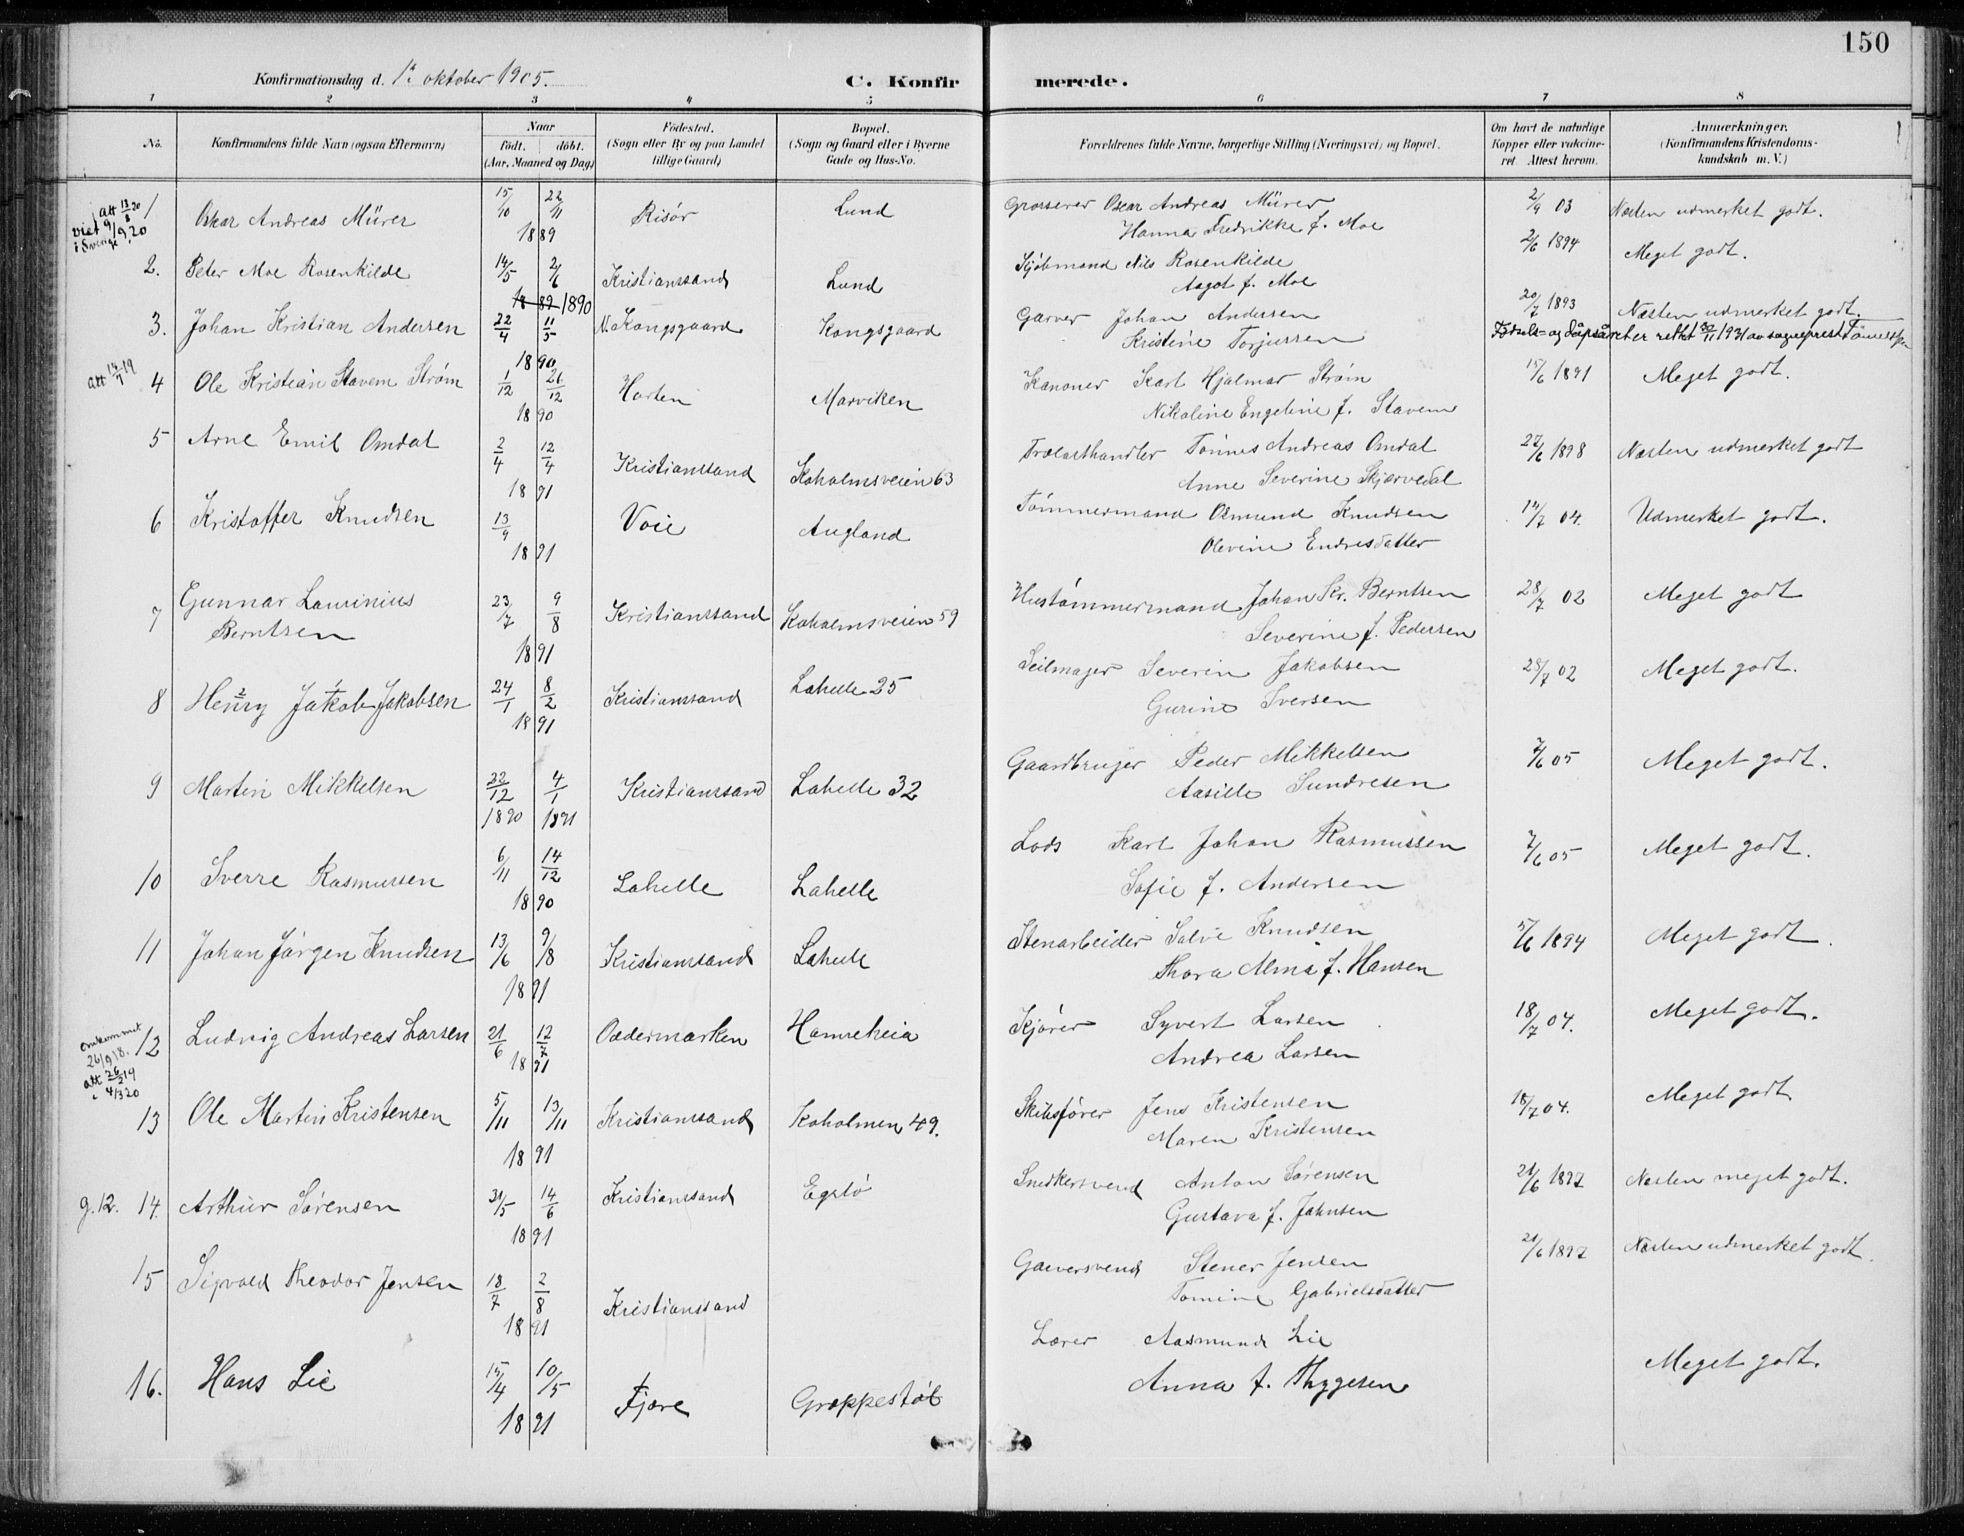 150
Konfirmationsdag d. 1ste oktober 1905.
C. Konfirmerede.
1 2 3 4 5 6 7 8
No.
Konfirmandens fulde Navn (ogsaa Efternavn)
Naar
födt. döbt.
(Aar, Maaned og Dag)
Födested.
(Sogn eller By og paa Landet
tillige Gaard)
Bopæl.
(Sogn og Gaard eller i Byerne
Gade og Hus-No.
Forældrenes fulde Navne, borgerlige Stilling (Næringsvei) og Bopæl.
Om havt de naturlige
Kopper eller vaccine-
ret. Attest herom.
Anmærkninger.
(Konfirmandens Kristendoms-
kundskab m. V.)
att 13/8 20
viet 9/9 20
i Sverige
1 Oskar Andreas Mürer 15/10 22/11 1889 Risör Lund Grosserer Oscar Andreas Mürer 2/9 03 Næsten udmerket godt.
Hanna Fredrikke f. Moe
2. Peter Moe Rosenkilde 14/5 2/6 1889 1890 Kristianssand Lund Kjöbmand Nils Rosenkilde 2/6 1894 Meget godt.
Aagot f. Moe
3. Johan Kristian Andersen 22/4 11/5 1890 N. Kongsgaard Kongsgaard Garver Johan Andersen 20/7 1893 Næsten udmerket godt.
Kristine Torjussen
Fødsels- og dåpsåret er rettet 30/11 1931 av sogneprest
att 14/7 19
4 Ole Kristian Stavem Strøm 1/12 26/12 1890 Horten Marviken Kanoner Karl Hjalmar Strøm 15/6 1891 Meget godt.
Nikoline Engeline f. Stavem
5 Arne Emil Omdal 2/4 12/4 1891 Kristianssand Koholmsveien 63 Trælasthandler Tönnes Andreas Omdal 27/6 1898 Næsten udmerket godt
Anne Severine Skjærvedal
6 Kristoffer Knudsen 13/9 1891 Voie Augland Tömmermand Osmund Knudsen 14/7 04. Udmerket godt.
Olevine Endresdatter
7 Gunnar Laurinius
Berntsen 23/7 9/8 1891 Kristianssand Koholmsveien 59 Hustömmermand Johan Kr. Berntsen 28/7 02 Meget godt
Severine f. Pedersen
8 Henry Jakob Jakobsen 24/1 8/2 1891 Kristianssand Lahelle 25 Seilmager Severin Jakobsen 28/7 02 Meget godt.
2 1
Gurine Iversen
9 Martin Mikkelsen 22/12 1890 4/1 1891 Kristianssand Lahelle 32 Gaardbruger Peder Mikkelsen 7/6 05 Meget godt.
Aasille Sundresen
10 Sverre Rasmussen 6/11 14/12 1890 Lahelle Lahelle Lods Karl Johan Rasmussen 7/6 05 Meget godt.
Sofie f. Andersen
11 Johan Jörgen Knudsen 13/6 9/8 1891 Kristianssand Lahelle Stenarbeider Salve Knudsen 5/6 1894 Meget godt.
Thora Alma f. Hansen
omkommet
26/9 18.
att 26/2 19
4/3 20
12 Ludvig Andreas Larsen 21/6 12/7 1891 Oddermarken Hanreheia Kjörer Syvert Larsen 18/7 04. Meget godt.
Andrea Larsen
13 Ole Martin Kristensen 5/11 13/11 1891 Kristianssand Koholmen 49. Skibsförer Jens Kristensen 18/7 04. Meget godt
Maren Kristensen
g.12. 14. Arthur Sörensen 31/5 14/6 1891 Kristianssand Egstö Snedkersvend Anton Sörensen 21/6 1897 Næsten meget godt.
Gustava f. Jahnsen
15 Sigvald Theodor Jensen 18/7 2/8 1891 Kristianssand Garversvend Stener Jensen 21/6 1897 Næsten udmerket godt.
Tomine Gabrielsdatter
16. Hans Lie 15/4 10/5 1891 Fjære Groppestöl Lærer Aasmund Lie Meget godt.
Anna f. Thygesen